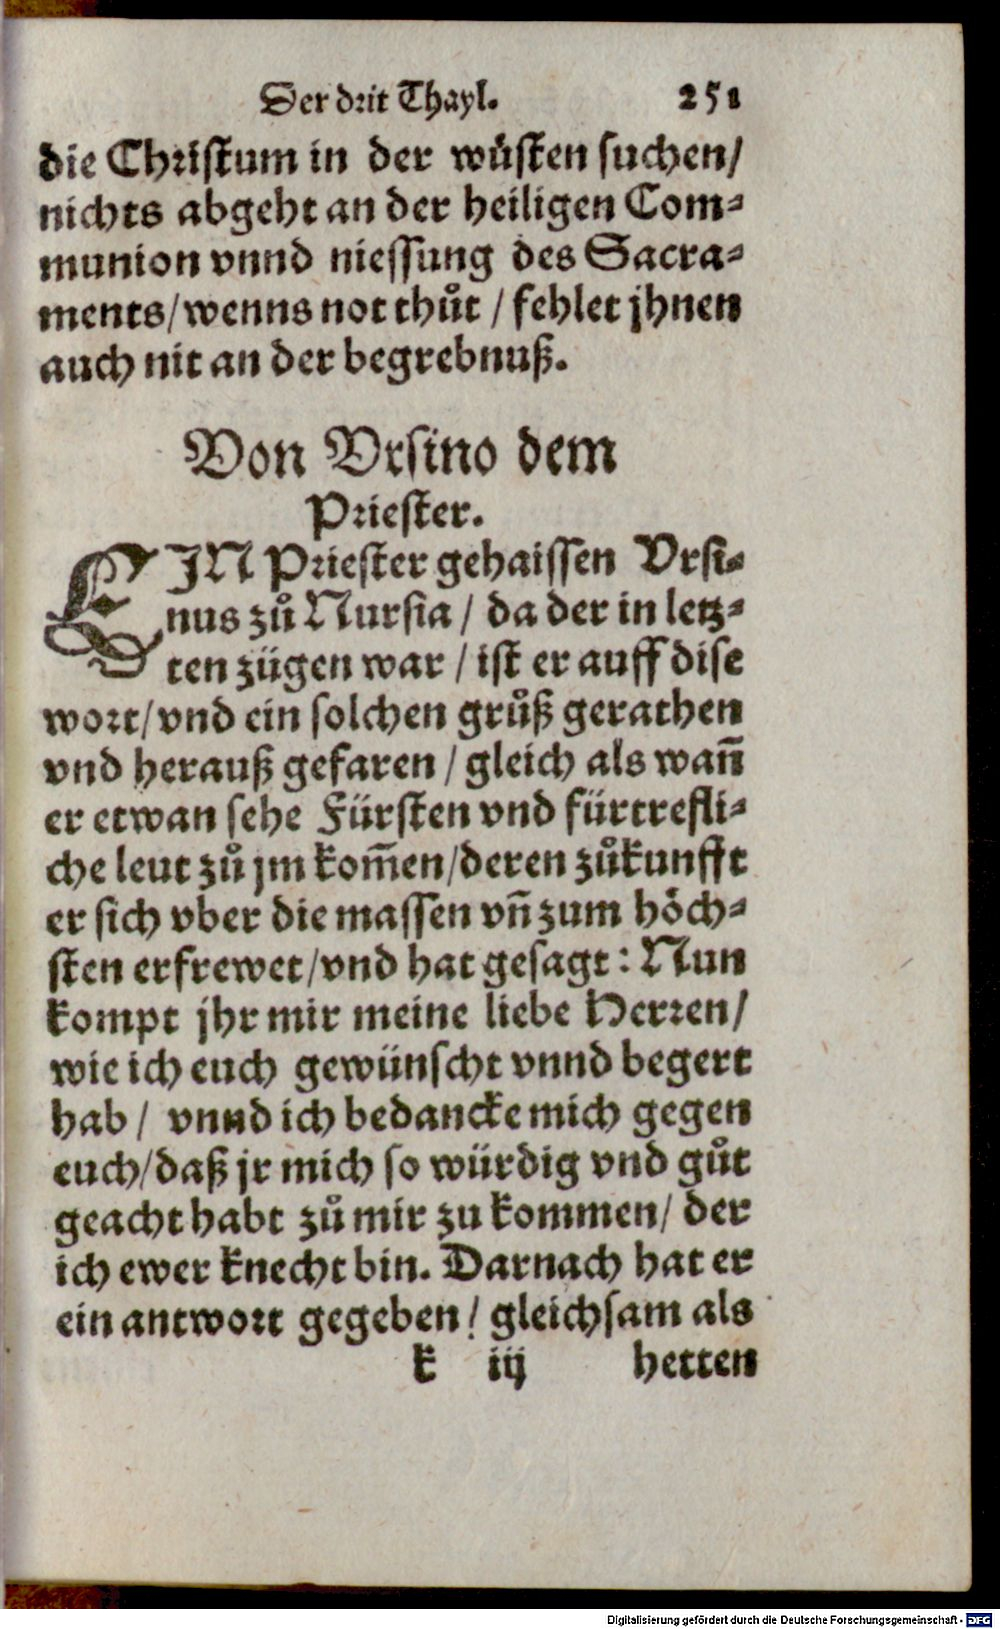 Der drit Thayl. 251
die Christum in der wůsten suchen/
nichts abgeht an der heiligen Com⸗
munion vnnd niessung des Sacra⸗
ments/wenns not thůt / fehlet jhnen
auch nit an der begrebnuß.
Von Vrsino dem
Priester.
EIN Priester gehaissen Vrsi⸗
nus zů Nursia / da der in letz⸗
ten zügen war / ist er auff dise
wort/vnd ein solchen grůß gerathen
vnd herauß gefaren / gleich als wañ
er etwan sehe Fürsten vnd fürtrefli⸗
che leut zů jm kom̃en/deren zůkunfft
er sich vber die massen vñ zum höch⸗
sten erfrewet/vnd hat gesagt: Nun
kompt jhr mir meine liebe Herren/
wie ich euch gewünscht vnnd begert
hab / vnnd ich bedancke mich gegen
euch/daß jr mich so würdig vnd gůt
geacht habt zů mir zu kommen/ der
ich ewer knecht bin. Darnach hat er
ein antwort gegeben / gleichsam als
k iij hetten
Digitalisierung gefördert durch die Deutsche Forschungsgemeinschaft - DFG